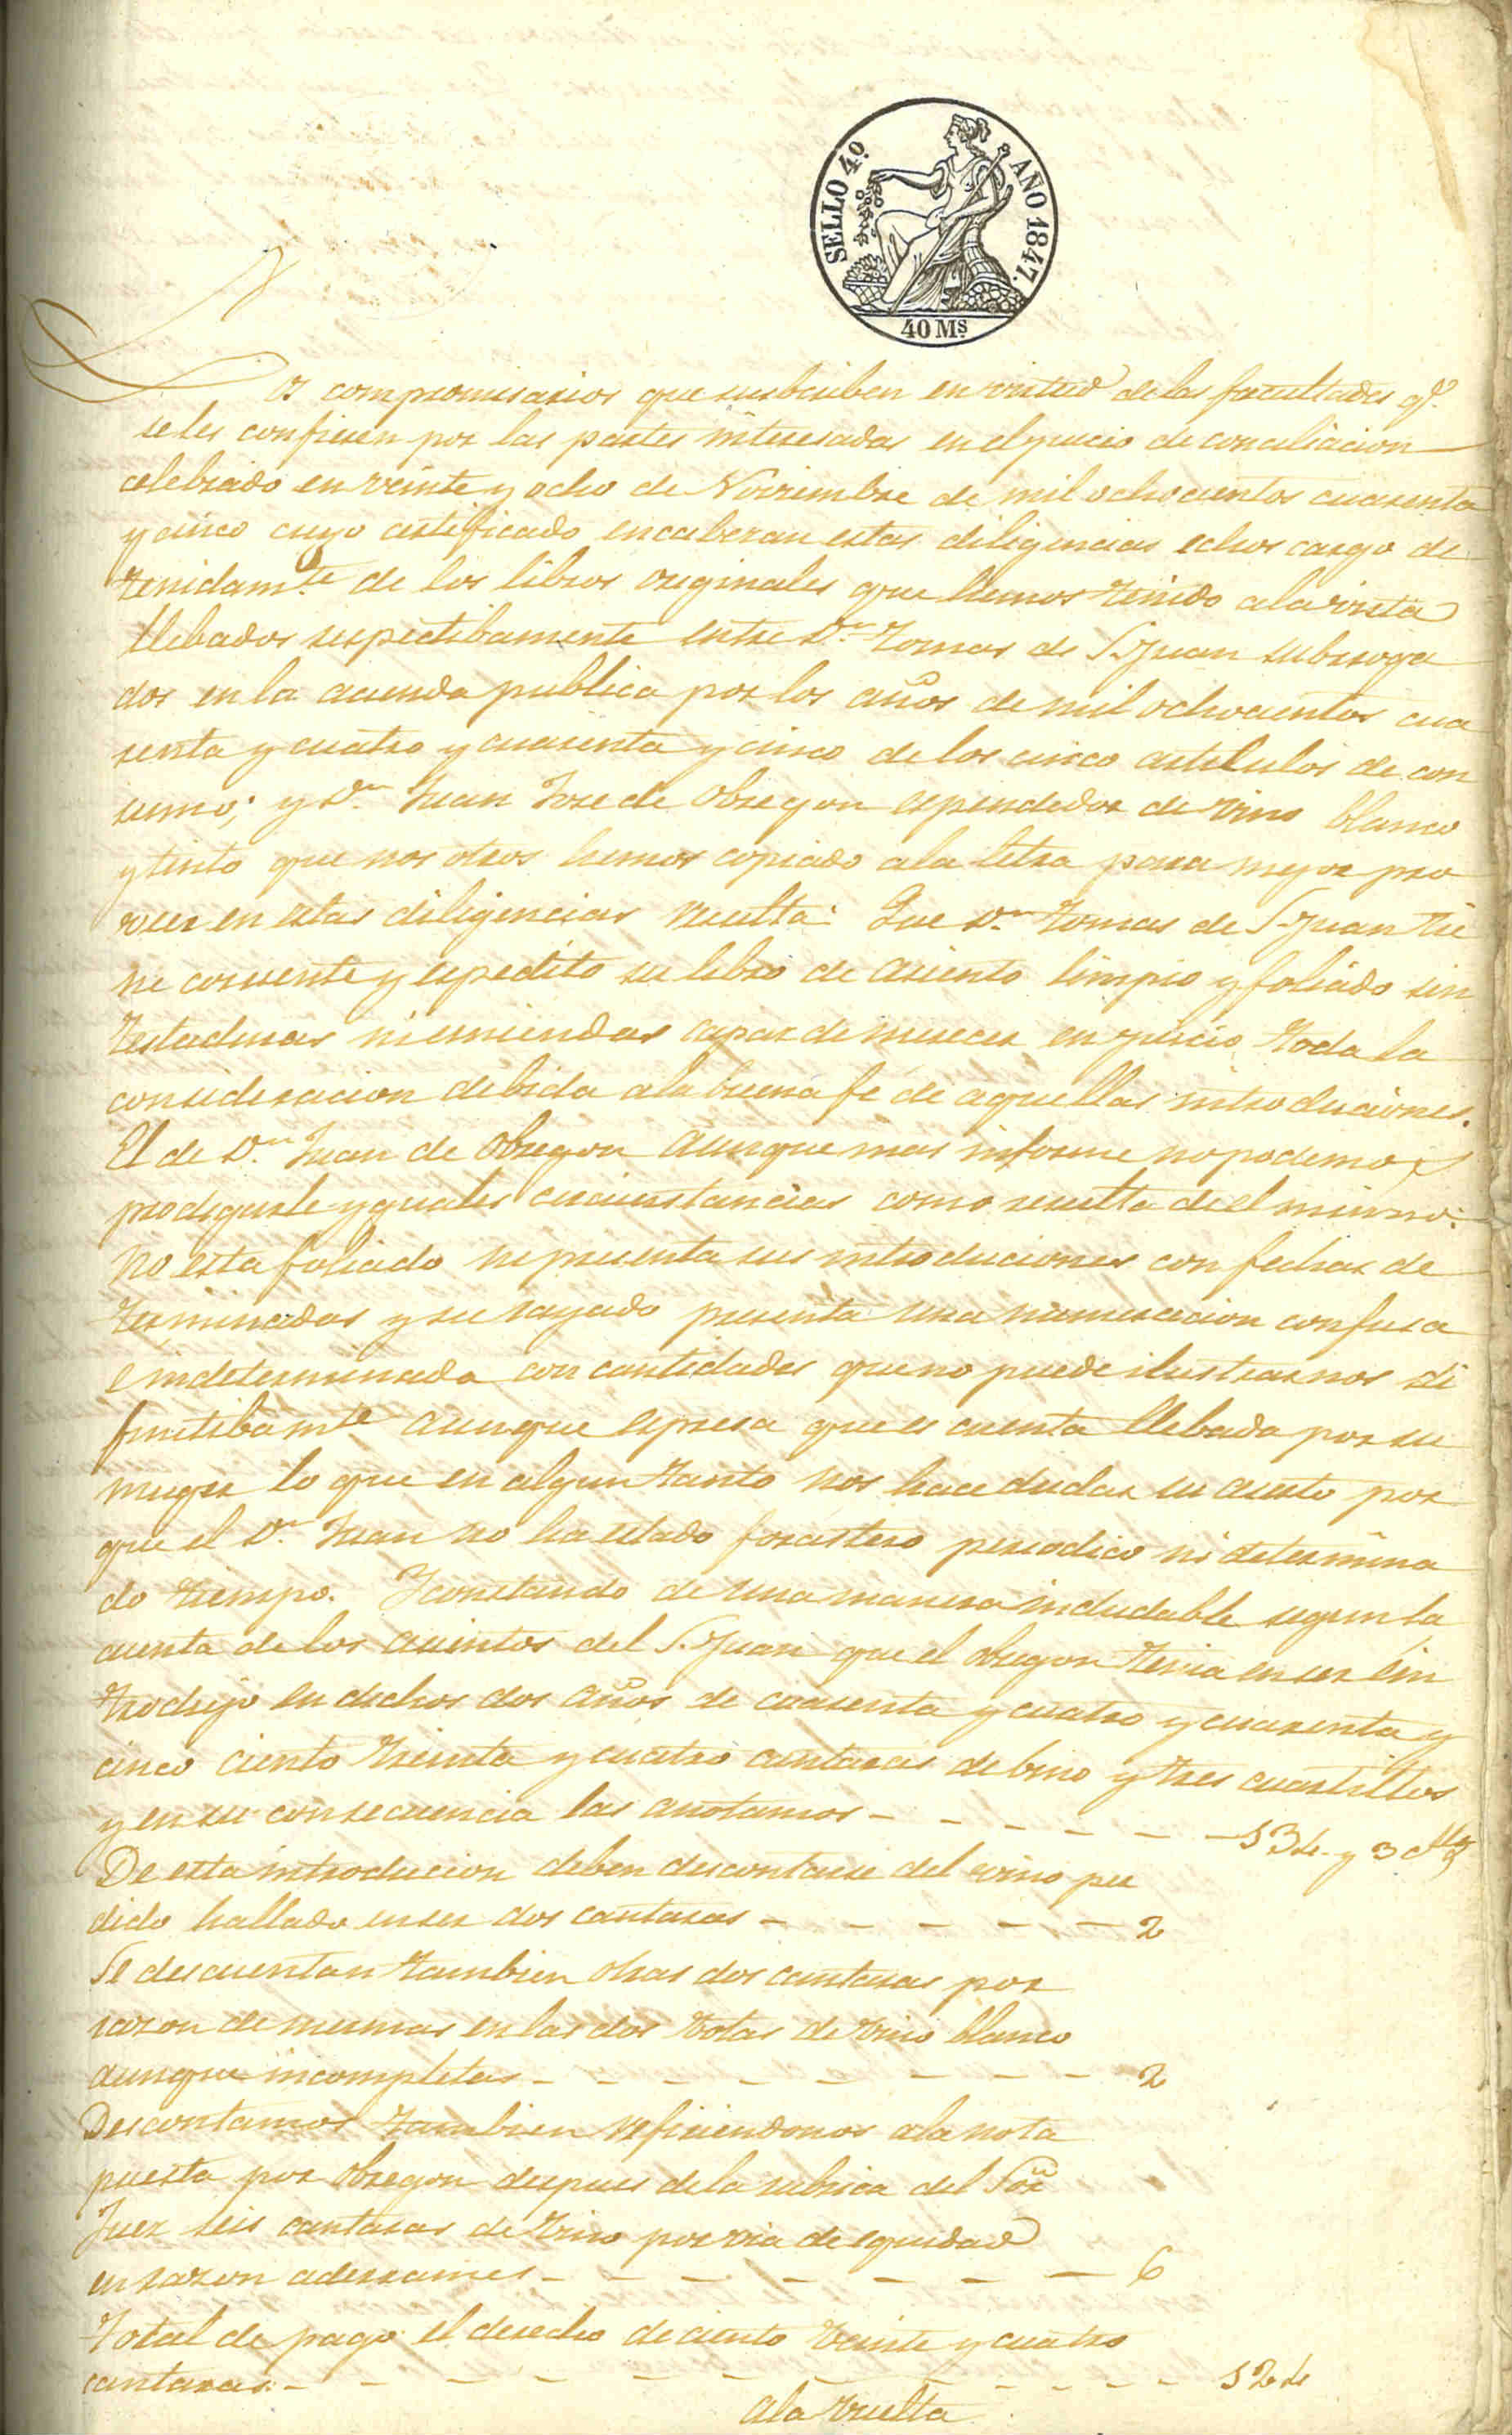 SELLO 4º
AÑO 1847.
40 Ms
Los compromisarios que suscriben en virtud de las facultades q.e
se les confieren por las partes interesadas en el juicio de conciliacion
celebrado en veinte y ocho de Noviembre de mil ochocientos cuarenta
y cinco cuyo certificado encabezan estas diligencias echos cargo de
tenidam.te de los libros originales que hemos tenido a la vista
llebados respectibamente entre D.n Tomas de S.Juan subrroga
dos en la acienda publica por los años de mil ochocientos cua
renta y cuatro y cuarenta y cinco de los cinco articulos de con
sumo; y D.n Juan Jose de Obregon espendedor de vino blanco
y tinto que nos otros hemos copiado a la letra para mejor pro
veer en estas diligencias resulta: Que D.n Tomas de S.Juan tie
ne corriente y espedito su libro de asiento limpio y foliado sin
testaduras ni enmiendas capaz de merecer en juicio toda la
consideracion debida a la buena fe de aquellas introduciones.
El de D.n Juan de Obregon aunque mas informe no podemos
prodigarle yguales circunstancias como resulta de el mismo:
no esta foliado ni presenta sus introduciones con fechas de
terminadas y su rayado presenta una numeracion confusa
e indeterminada con cantidades que no puede ilustrarnos di
finitibam.te aunque espresa que es cuenta llebada por su
muger lo que en algun tanto nos hace dudar su acierto por
que el D.n Juan no ha estado forastero periodico ni determina
do tiempo. Y constando de una manera indudable segun la
cuenta de los asientos del S.Juan que el Obregon tenia enser e in
trodujo en dichos dos años de cuarenta y cuatro y cuarenta y
cinco ciento treinta y cuatro cantaras de bino y tres cuartillos
y en su consecuencia las anotamos - - - - - - 134. y 3 c.llos
De esta introducion deben descontarse del vino per
dido hallado enser dos cantaras - - - - - 2
Se descuentan tambien otras dos cantaras por
razon de mermas en las dos botas de vino blanco
aunque incompletas - - - - - - - - 2
Descontamos tambien refiriendonos a la nota
puesta por Obregon despues de la rubrica del Sor
Juez seis cantaras de vino por via de equidad
en razon a derrames - - - - - - - 6
Total de pago el derecho de ciento veinte y cuatro
cantaras - - - - - - - - - - 124
A la vuelta